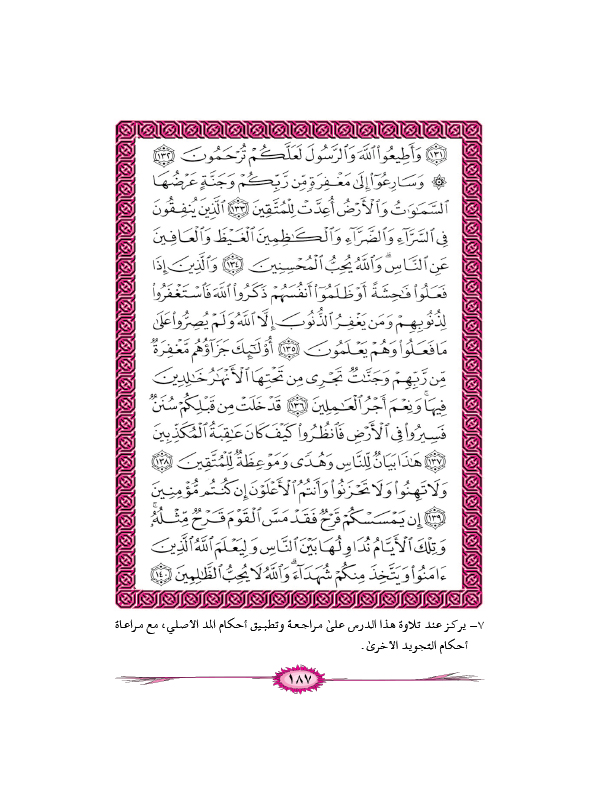 ﴿١٣١﴾ وَأَطِيعُوا۟ ٱللَّهَ وَٱلرَّسُولَ لَعَلَّكُمْ تُرْحَمُونَ ﴿١٣٢﴾
۞ وَسَارِعُوٓا۟ إِلَىٰ مَغْفِرَةٍ مِّن رَّبِّكُمْ وَجَنَّةٍ عَرْضُهَا
ٱلسَّمَـٰوَٰتُ وَٱلْأَرْضُ أُعِدَّتْ لِلْمُتَّقِينَ ﴿١٣٣﴾ ٱلَّذِينَ يُنفِقُونَ
فِى ٱلسَّرَّآءِ وَٱلضَّرَّآءِ وَٱلْكَـٰظِمِينَ ٱلْغَيْظَ وَٱلْعَافِينَ
عَنِ ٱلنَّاسِ ۗ وَٱللَّهُ يُحِبُّ ٱلْمُحْسِنِينَ ﴿١٣٤﴾ وَٱلَّذِينَ إِذَا
فَعَلُوا۟ فَـٰحِشَةً أَوْ ظَلَمُوٓا۟ أَنفُسَهُمْ ذَكَرُوا۟ ٱللَّهَ فَٱسْتَغْفَرُوا۟
لِذُنُوبِهِمْ وَمَن يَغْفِرُ ٱلذُّنُوبَ إِلَّا ٱللَّهُ وَلَمْ يُصِرُّوا۟ عَلَىٰ
مَا فَعَلُوا۟ وَهُمْ يَعْلَمُونَ ﴿١٣٥﴾ أُو۟لَـٰٓئِكَ جَزَآؤُهُم مَّغْفِرَةٌ
مِّن رَّبِّهِمْ وَجَنَّـٰتٌ تَجْرِى مِن تَحْتِهَا ٱلْأَنْهَـٰرُ خَـٰلِدِينَ
فِيهَا ۚ وَنِعْمَ أَجْرُ ٱلْعَـٰمِلِينَ ﴿١٣٦﴾ قَدْ خَلَتْ مِن قَبْلِكُمْ سُنَنٌ
فَسِيرُوا۟ فِى ٱلْأَرْضِ فَٱنظُرُوا۟ كَيْفَ كَانَ عَـٰقِبَةُ ٱلْمُكَذِّبِينَ
﴿١٣٧﴾ هَـٰذَا بَيَانٌ لِّلنَّاسِ وَهُدًى وَمَوْعِظَةٌ لِّلْمُتَّقِينَ ﴿١٣٨﴾
وَلَا تَهِنُوا۟ وَلَا تَحْزَنُوا۟ وَأَنتُمُ ٱلْأَعْلَوْنَ إِن كُنتُم مُّؤْمِنِينَ
﴿١٣٩﴾ إِن يَمْسَسْكُمْ قَرْحٌ فَقَدْ مَسَّ ٱلْقَوْمَ قَرْحٌ مِّثْلُهُۥ ۚ
وَتِلْكَ ٱلْأَيَّامُ نُدَاوِلُهَا بَيْنَ ٱلنَّاسِ وَلِيَعْلَمَ ٱللَّهُ ٱلَّذِينَ
ءَامَنُوا۟ وَيَتَّخِذَ مِنكُمْ شُهَدَآءَ ۗ وَٱللَّهُ لَا يُحِبُّ ٱلظَّـٰلِمِينَ ﴿١٤٠﴾
٧- يركز عند تلاوة هذا الدرس على مراجعة وتطبيق أحكام المد الاصلي، مع مراعاة
أحكام التجويد الاخرى.
١٨٧